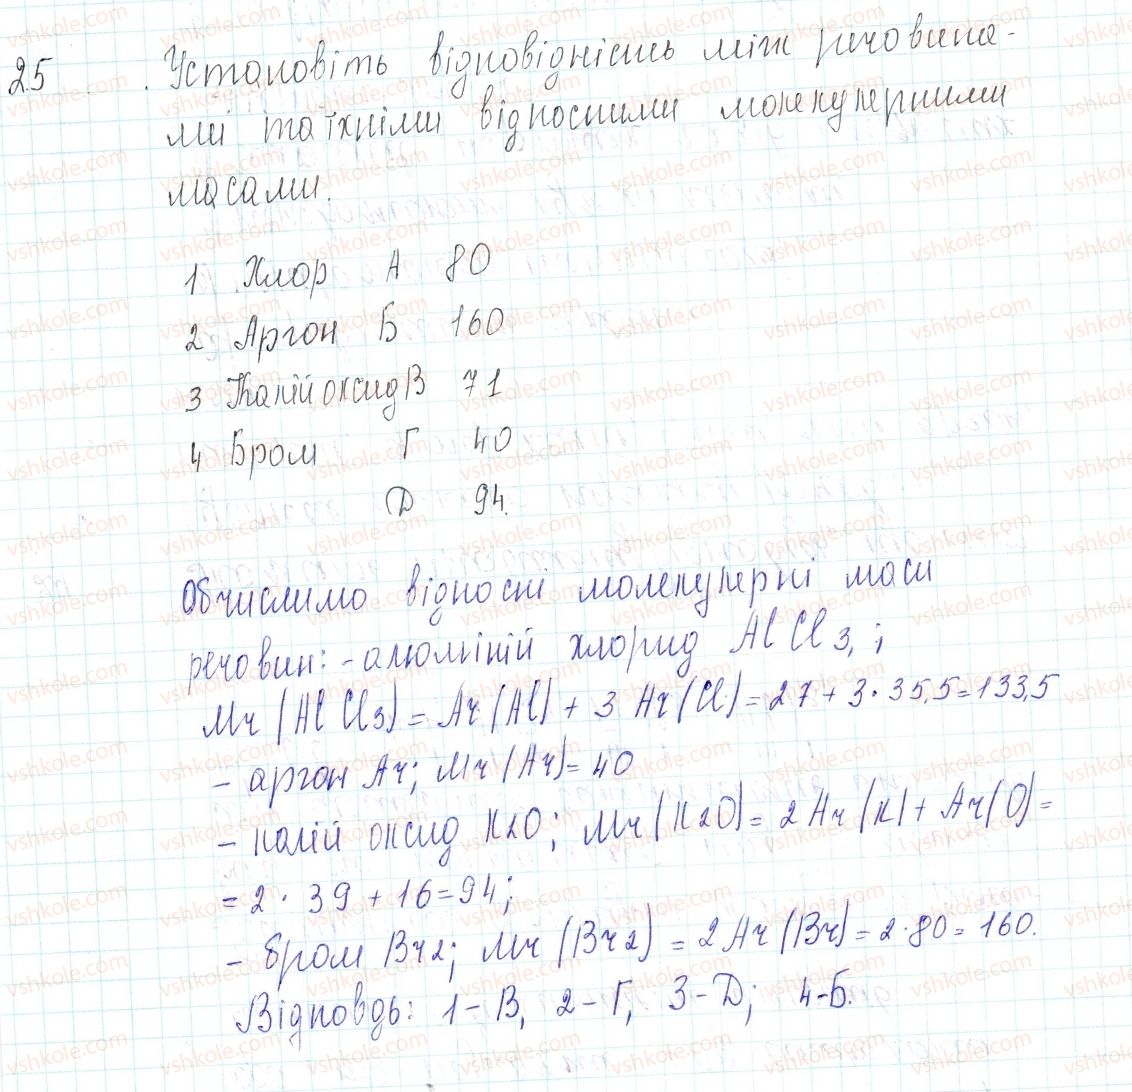 25 Установіть відповідність між речовина-
ми та їхніми відносними молекулярними
масами.
1 Хлор А 80
2 Аргон Б 160
3 Калій оксид В 71
4 Бром Г 40
Д 94.
Обчислимо відносні молекулярні маси
речовин: - алюміній хлорид AlCl3, ;
Mr (AlCl3) = Ar (Al) + 3 Ar (Cl) = 27 + 3 · 35,5 = 133,5
- аргон Ar; Mr (Ar) = 40
- калій оксид K2O; Mr (K2O) = 2 Ar (K) + Ar (O) =
= 2 · 39 + 16 = 94;
- бром Br2; Mr (Br2) = 2 Ar (Br) = 2 · 80 = 160.
Відповдь: 1 - В, 2 - Г, 3 - Д; 4 - Б.